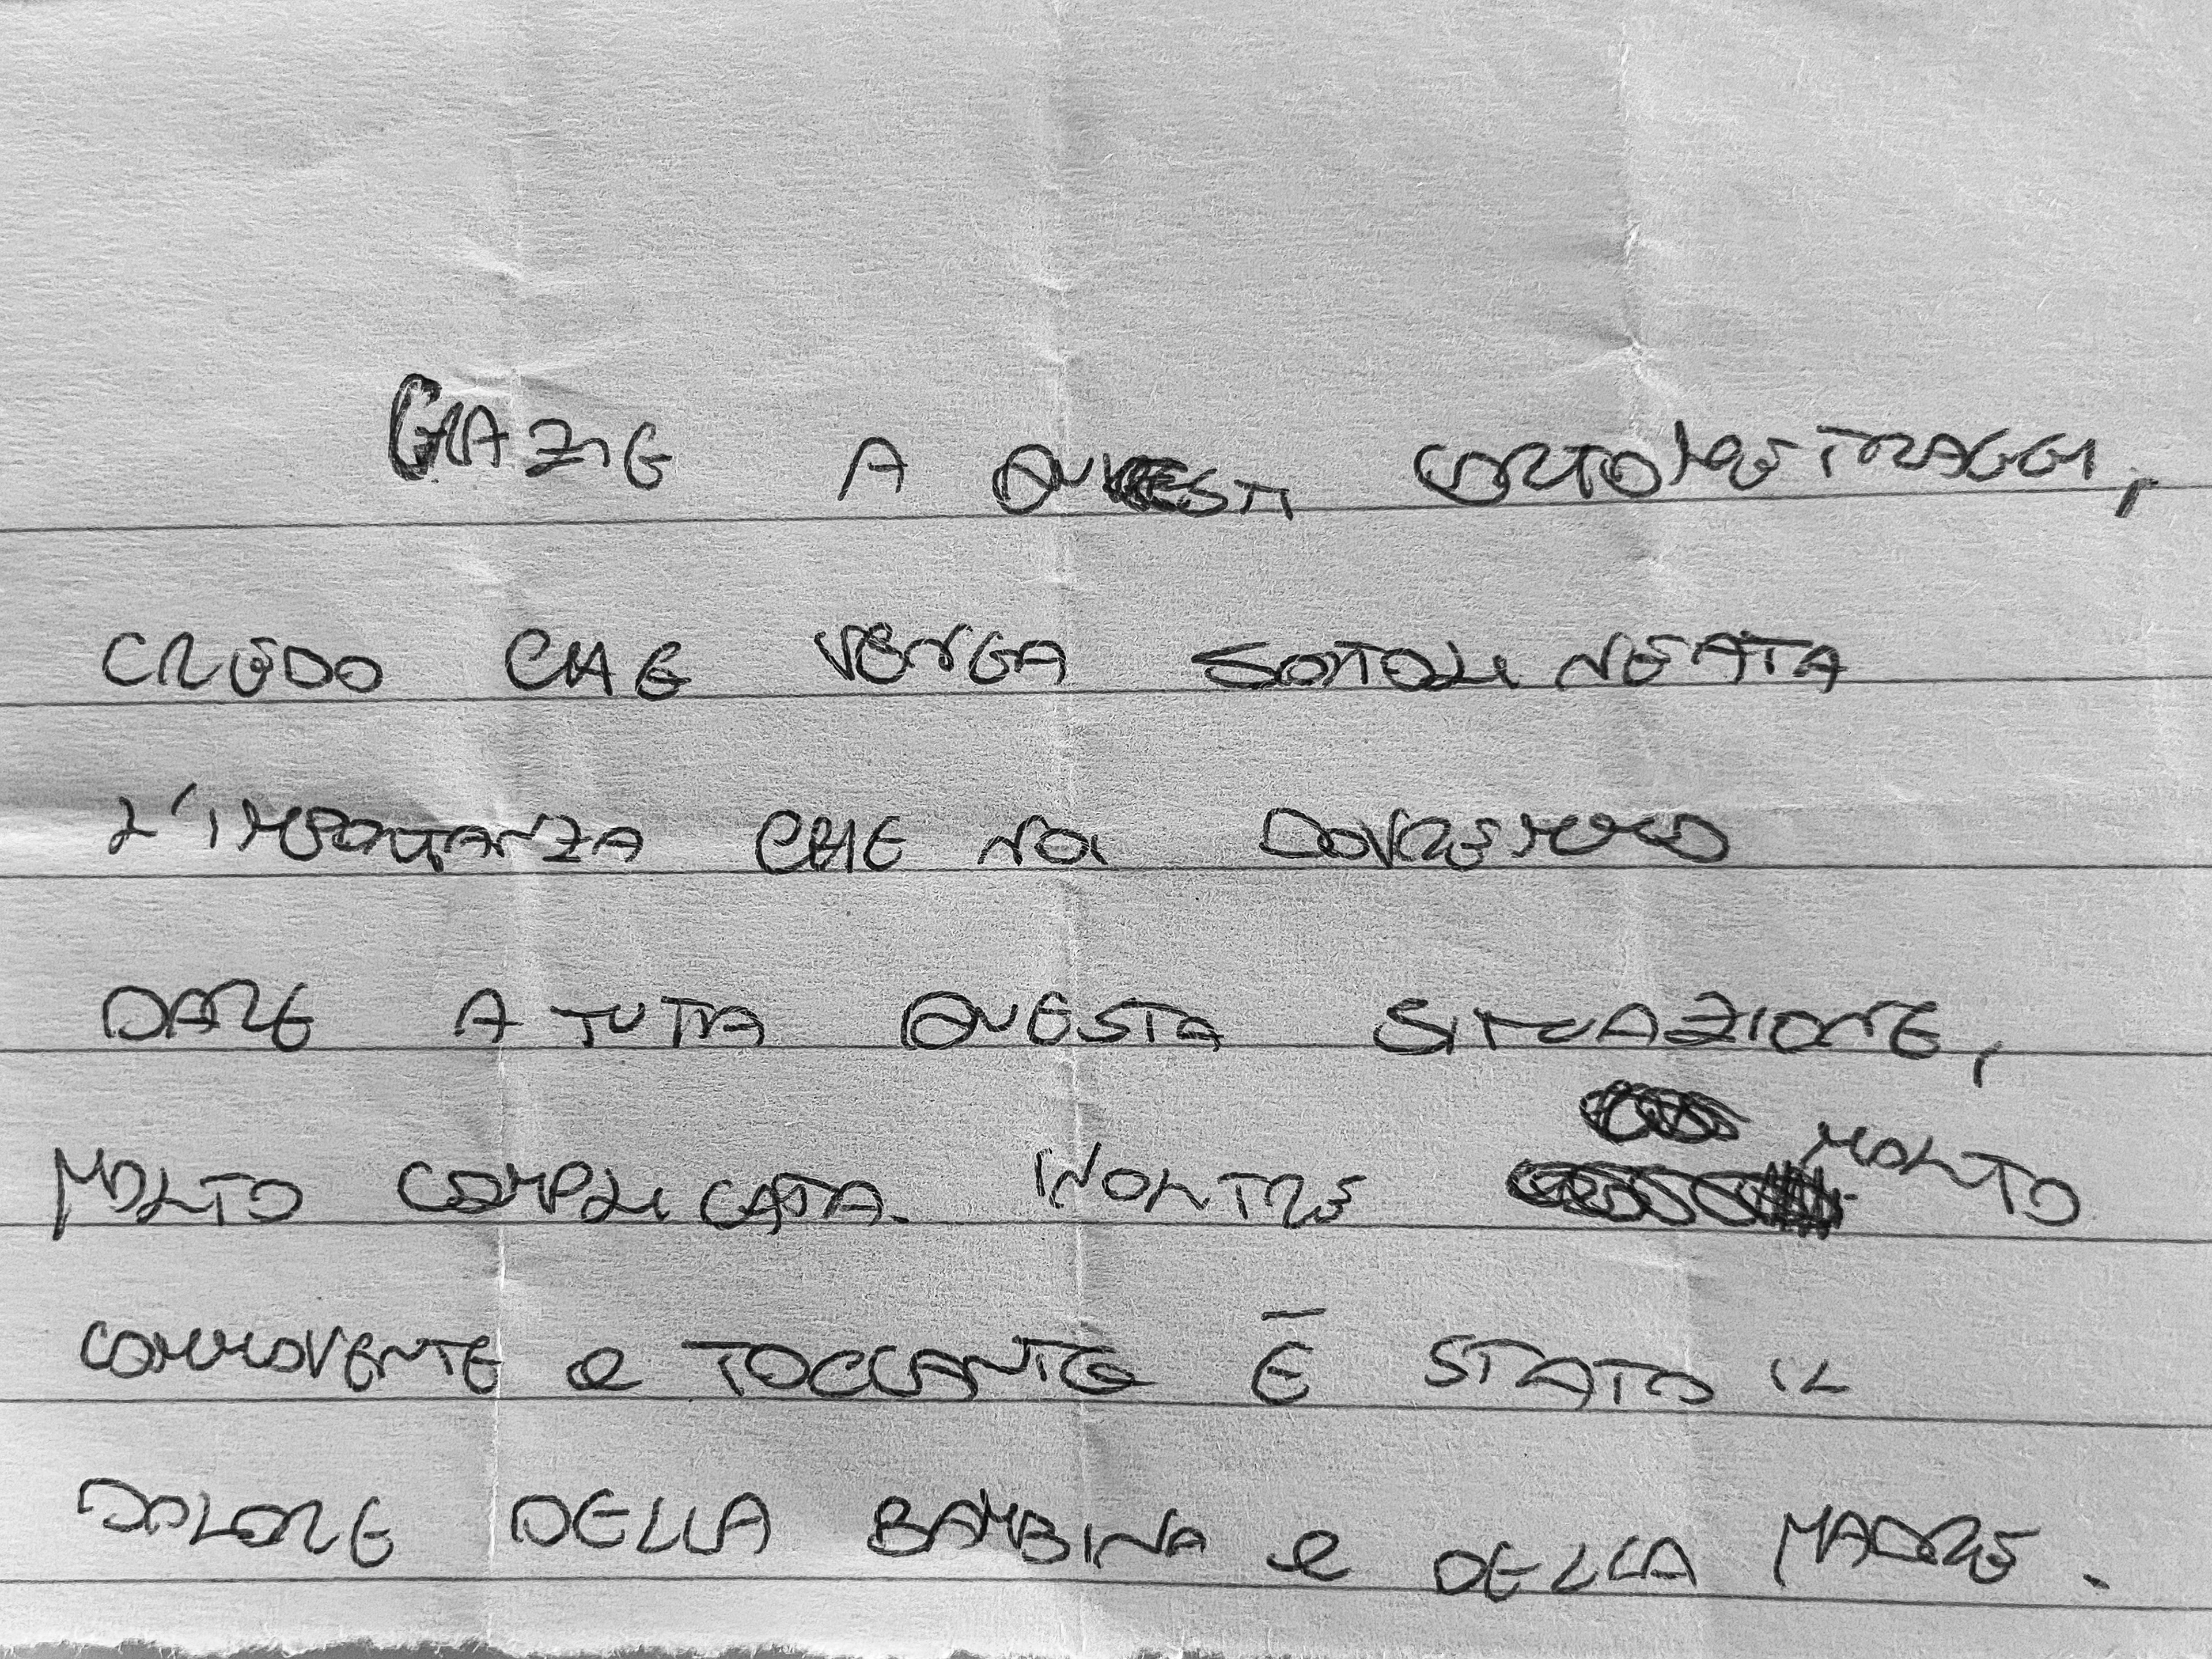 GRAZIE A QUESTI CORTOMETRAGGI,
CREDO CHE VENGA SOTTOLINEATA
L'IMPORTANZA CHE NOI DOVREMMO
DARE A TUTTA QUESTA SITUAZIONE,
MOLTO COMPLICATA. INOLTRE MOLTO
COMMOVENTE e TOCCANTE È STATO IL
DOLORE DELLA BAMBINA e DELLA MADRE.